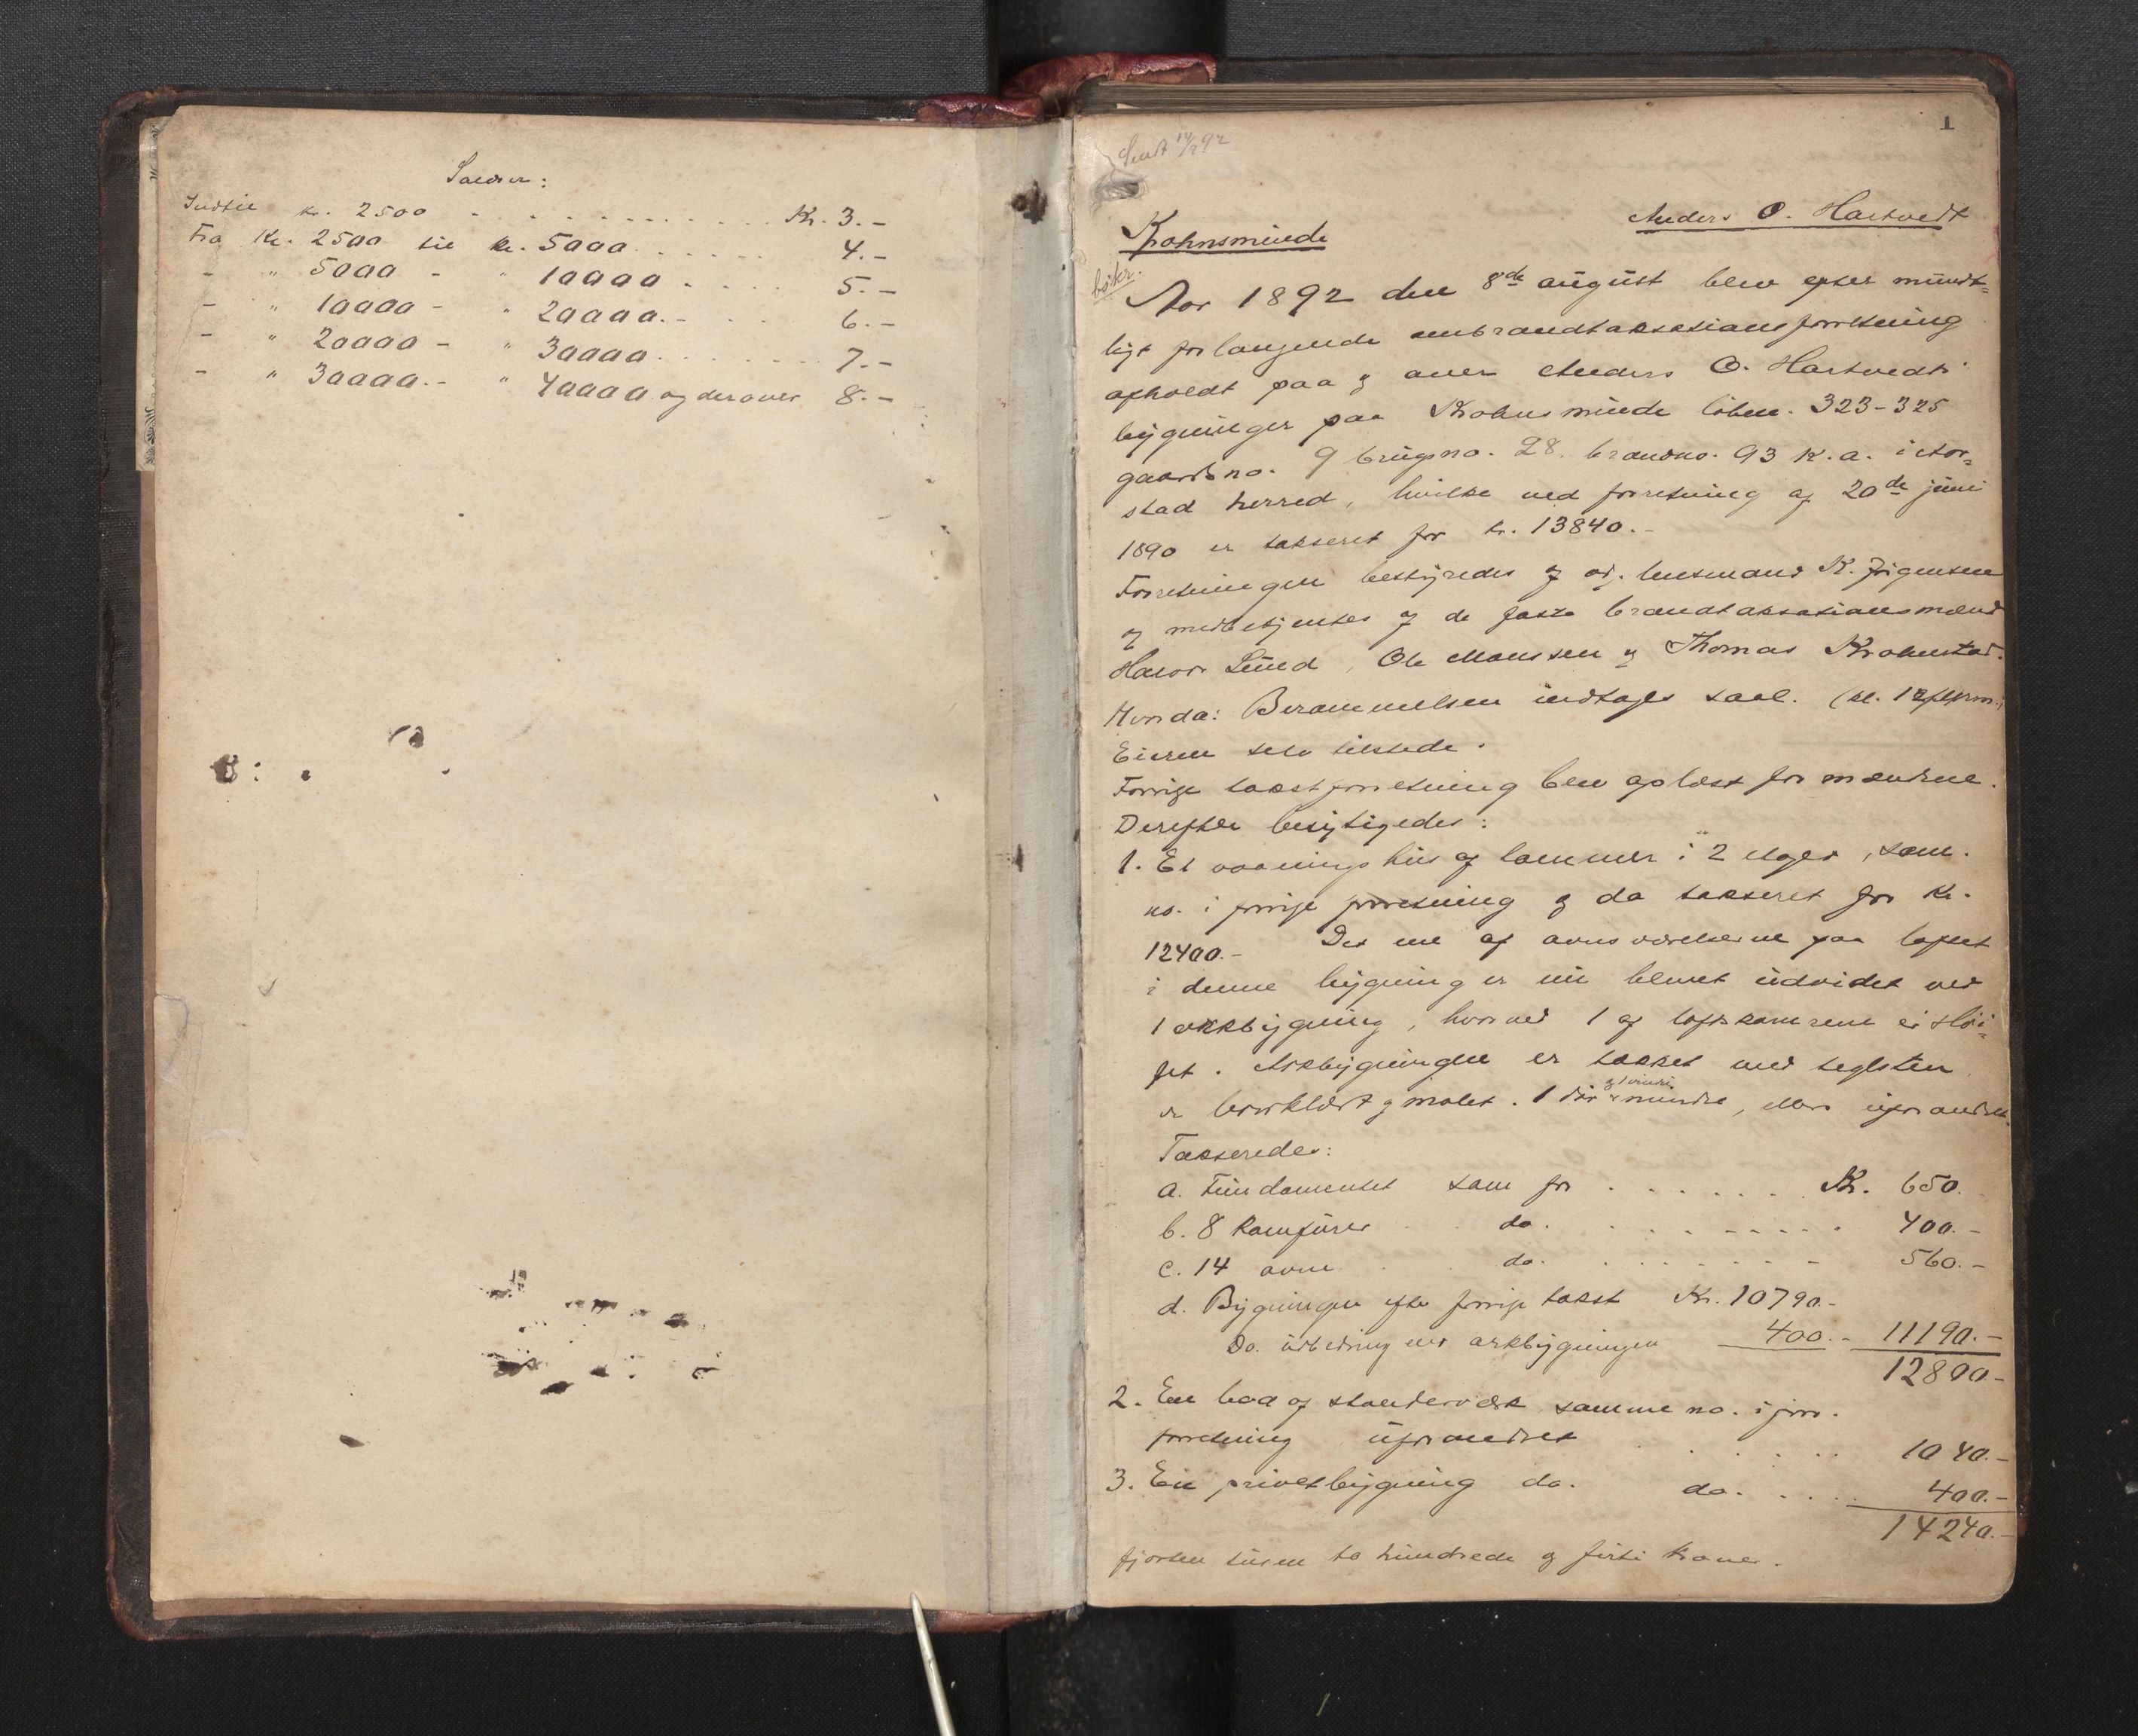 Satser:
Indtil kr. 2500 . . . . . . . . . . . Kr. 3.-
Fra Kr. 2500 til kr. 5000 . . . . . . 4.-
- " 5000 - " 10000 . . . . 5.-
- " 10000 - " 20000.- . . . 6.-
- " 20000 - " 30000 . . . . . . . 7.-
- " 30000.- " 40000 og derover 8.-
1
Sendt 14/9 92
Krohnsminde
Anders O. Hartvedt
bokr.
Aar 1892 den 8de august blev efter mundt=
ligt forlangende ombrandtaksationsforretning
afholdt paa og over Anders O. Hartvedts
bygninger paa Krohnsminde löbno. 323-325
gaardsno. 9 brugsno. 28. brandno. 93 K.a. i Aar=
stad herred, hvilke ved forretning af 20de juni
1890 er takseret for kr. 13840.-
Forretningen bestyredes af lensmand K. Jörgensen
og medbetjentes af de faste brandtaksationsmænd
Halvor Lund, Ole Monssen og Thomas Krohnstad.
Hvorda: Berammelsen indtages saal.
Eieren selv tilstede.
Forrige takstforretning blev oplæst for mændene.
Derefter besigtigedes:
1. Et vaaningshus af tömmer i 2 etager, sam.
no. i forrige forretning og da takseret for Kr.
12400.- Det ene af ovnsværelserne paa loftet
i denne bygning er nu blevet udvidet ved
1 arkbygning, hvorved 1 af loftskamrene er slöi=
fet. Arkbygningen er tækket med teglsten
er bordklædt og malet. 1 dör og 1 vindu mindre, ellers uforandret.
Takseredes:
a. Fundamentet som för . . . . . . Kr. 650.-
b. 8 komfurer . . do. . . . . . . . 400.-
c. 14 ovne . . do. . . . . . . . 560.-
d. Bygningen efter forrige takst Kr. 10790.-
Do. udbedring ved arkbygningen 400.- 11190.-
12800.-
2. En bod af stenderværk samme no. i forr.
forretning uforandret . . . . . 1040.-
3. En privetbygning do. do. . . . . 400.-
14240.-
fjorten tusen to hundrede og förti kroner.